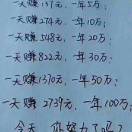 一天赚137元、一年5万；
一天赚274元、一年10万；
一天赚548元、一年20万；
一天赚822元、一年30万；
一天赚1370元、一年50万；
一天赚2739元、一年100万；
今天 你努力了吗？